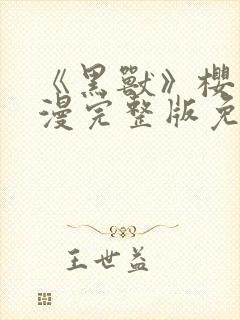 《黑獸》櫻
漫完整版免
王世益